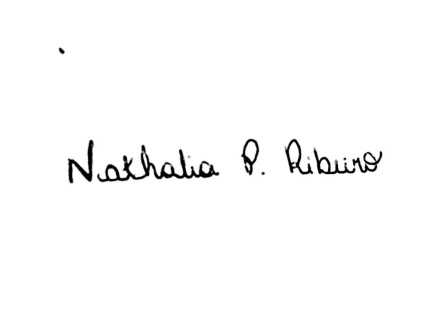 Nathalia P. Ribeiro